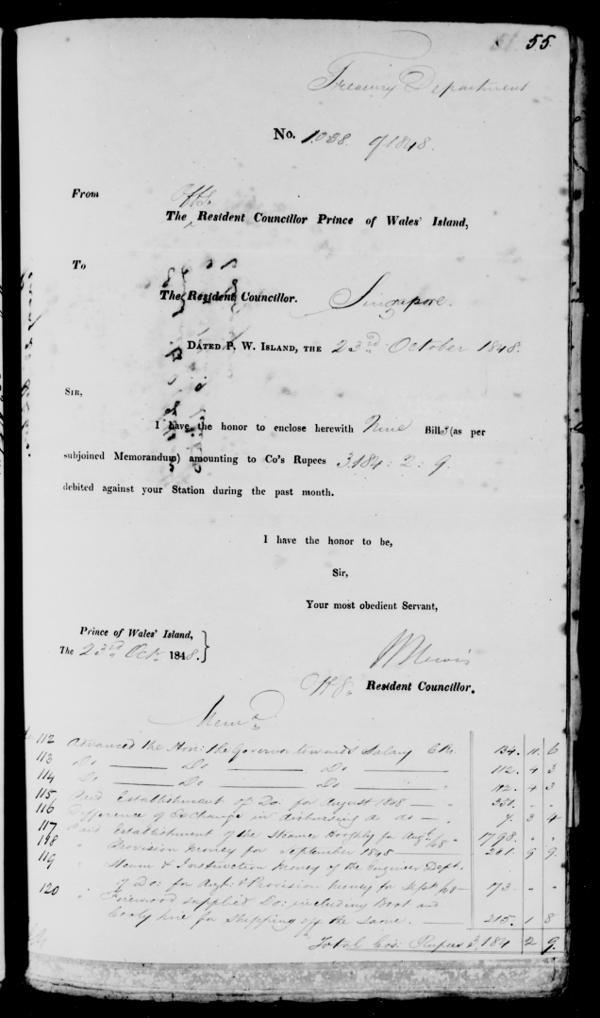 55
Treasury Department
No. 1038 of 1848.
From
Offg.
The Resident Councillor Prince of Wales' Island,
To
The Resident Councillor. Singapore.
DATED P. W. ISLAND, THE 23rd October 1848.
SIR,
I have the honor to enclose herewith Nine Bills (as per
subjoined Memorandum) amounting to Co's Rupees 3,184 : 2 : 9.
debited against your Station during the past month.
I have the honor to be,
Sir,
Your most obedient Servant,
Prince of Wales' Island,
The 23rd Octr. 1848.
WLewis
Offg. Resident Councillor.
Memo.
112 Advanced the Hon: the Governor towards Salary 134. 11. 6
113 Do Do Do 112. 4 3
114 Do Do Do 112. 4 3
115 Paid Establishment of Do. for August 1848 - -
116 Difference of Exchange in disbursing do do 7. 3 4
117 Paid Establishment of the Steamer Hooghly for Augt. /48 1798. - -
118 " Provision money for September 1848 9 9.
119 " & Instruction money of the Engineer Dept.
of Do: for Augt. & Provision money for Septr. /48 173 - -
120 " Firewood supplied Do: including Boat and
Cooly hire for Shipping off the same. 215. 1 8
Total Cos: Rupees 3,184 2 9.